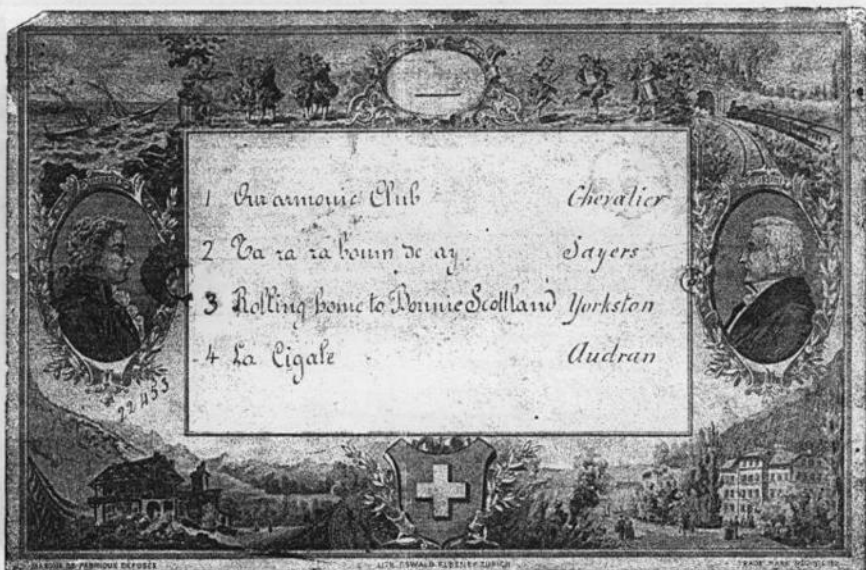 1 Our armonic Club Chevalier
2 Ta ra ra boum de ay. Sayers
3 Rolling home to Bonnie Scottland Yorkston
4 La Cigale Audran
22453
MARQUE DE FABRIQUE DEPOSÉE LITH. OSWALD ZÜRICH TRADE MARK